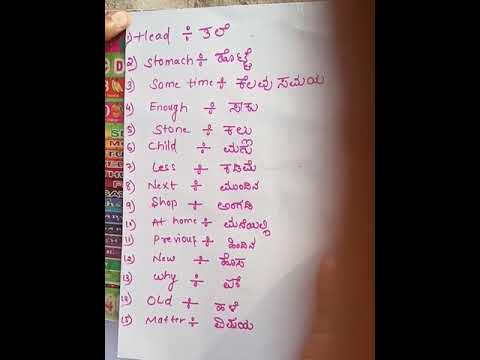 1) Head ÷ ತಲೆ
2) Stomach ÷ ಹೊಟ್ಟೆ
3) Some time ÷ ಕೆಲವು ಸಮಯ
4) Enough ÷ ಸಾಕು
5) Stone ÷ ಕಲ್ಲು
6) Child ÷ ಮಕ್ಕಳು
7) Less ÷ ಕಡಿಮೆ
8) Next ÷ ಮುಂದಿನ
9) Shop ÷ ಅಂಗಡಿ
10) At home ÷ ಮನೆಯಲ್ಲಿ
11) Previous ÷ ಹಿಂದಿನ
12) New ÷ ಹೊಸ
13) Why ÷ ಏಕೆ
14) Old ÷ ಹಳೆ
15) Matter ÷ ವಿಷಯ